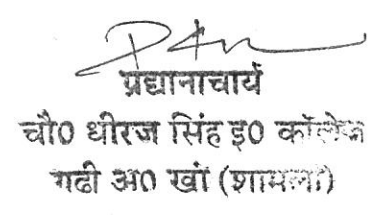 प्रधानाचार्य
चौ0 धीरज सिंह इ0 कॉलेज
गढी अ0 खां (शामली)